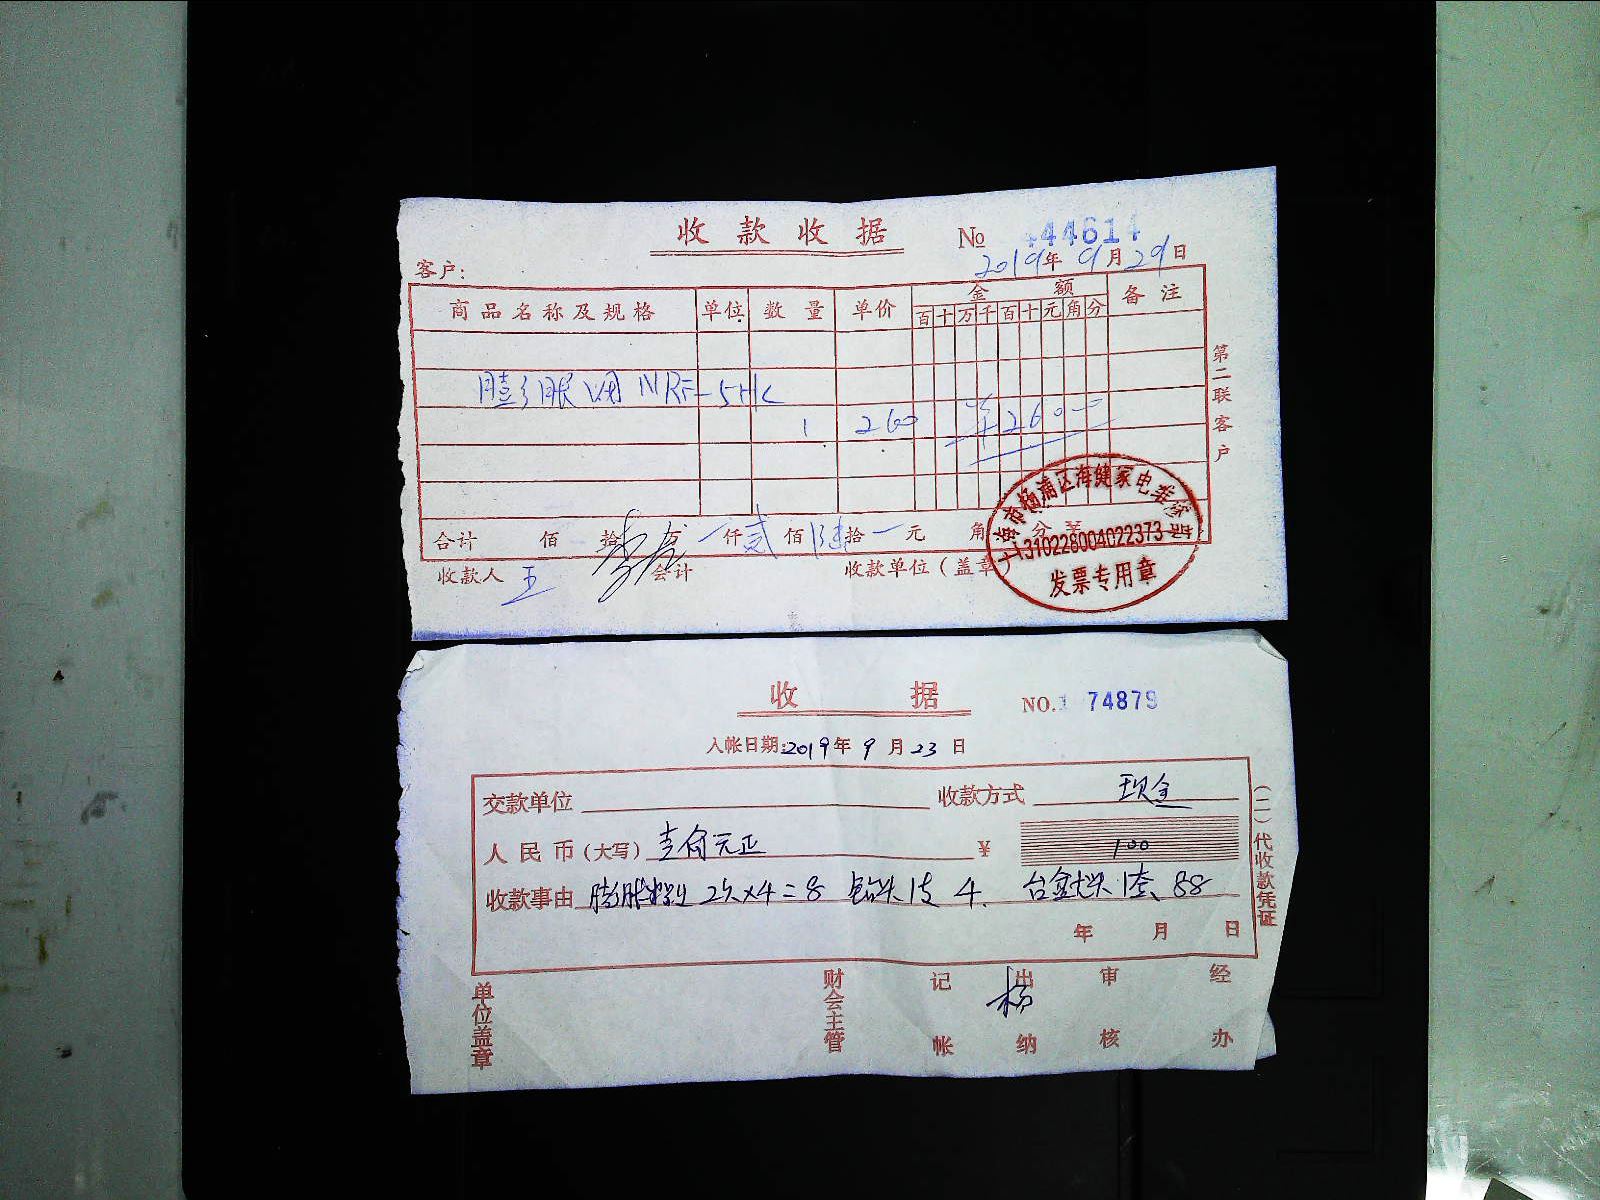 收款收据
№ 444614
客户: 2019年9月29日
商品名称及规格 单位 数量 单价 金额 备注
百十万千百十元角分
膨胀阀 NRF-5HK
1 260 ¥260
合计 佰 拾 万 仟 贰 佰 陆 拾 元 角 分 ¥
收款人 王 会计 收款单位(盖章)
第二联客户
上海市杨浦区海健家电维修站
310228004022373
发票专用章
收据
NO. 74879
入帐日期:2019年9月23日
交款单位 收款方式 现金
人民币(大写) 壹佰元正 ¥ 100
收款事由 膨胀 2×4=8 钻头1支 4. 合金 1套、88
年 月 日
(二)代收款凭证
单位盖章 财会主管 记帐 出纳 杨 审核 经办